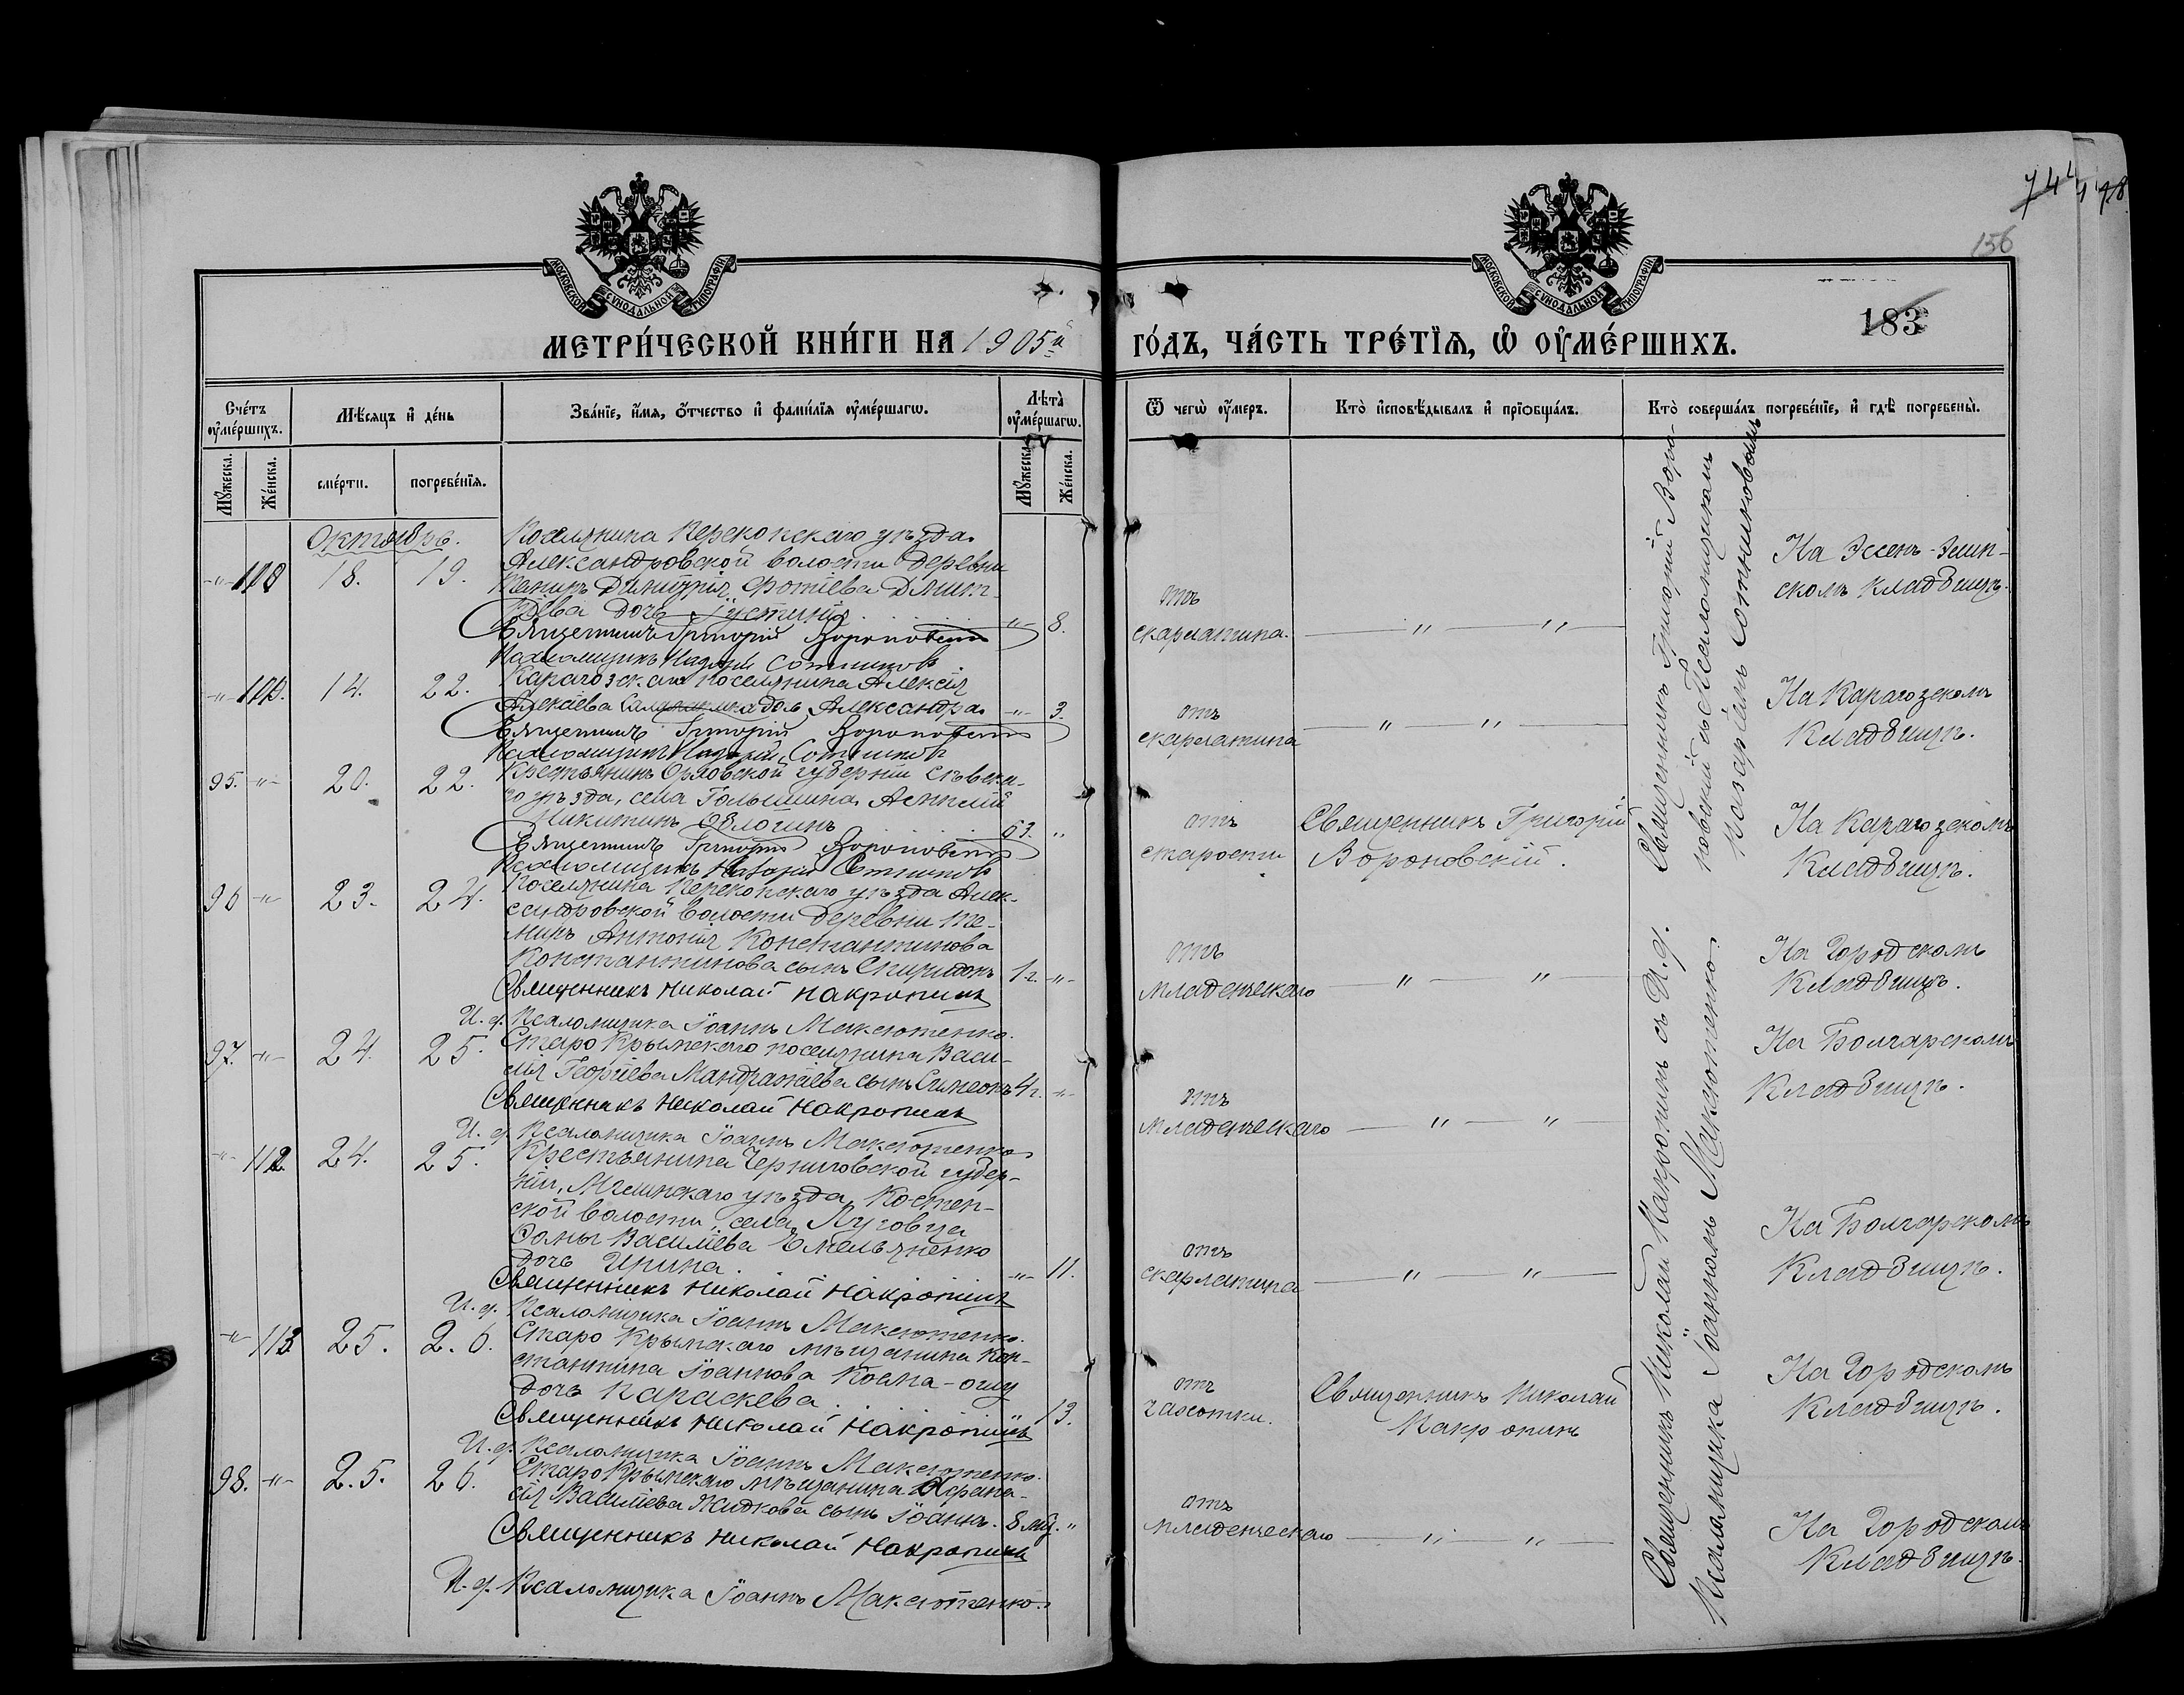 744
478
156
183
МОСКОВСКОЙ СѴНОДАЛЬНОЙ ТИПОГРАФІИ
МОСКОВСКОЙ СѴНОДАЛЬНОЙ ТИПОГРАФІИ
МЕТРИ́ЧЕСКОЙ КНИ́ГИ НА 1905й ГО́ДЪ, ЧА́СТЬ ТРЕ́ТІЯ, Ѡ҆ ОУ҆МЕ́РШИХЪ.
Сче́тъ оу҆ме́ршихъ.
Мѣ́сяцъ и҆ де́нь
Зва́ніе, и҆́мя, ѻ҆́тчество и҆ фами́лія оу҆ме́ршагѡ.
Лѣ́та оу҆ме́ршагѡ.
Ѿ чегѡ̀ оу҆́меръ.
Кто̀ и҆сповѣ́дывалъ и҆ прїѡбща́лъ.
Кто̀ соверша́лъ погребе́нїе, и҆ гдѣ̀ погребены̀.
Мꙋ́жеска.
Же́нска.
сме́рти.
погребе́нїя.
Мꙋ́жеска.
Же́нска.
Октябрь.
Поселянина Перекопскаго уѣзда
-"- 110 18. 19. Александровской волости деревни
Димитрія Фотіева Димит-
ріева дочь Іустинія. -"- 8.
Священникъ Григорій Вороновскій
Псаломщикъ Назарій Сотниковъ
отъ
скарлатина. — " — " —
На Эссенъ-Эли-
скомъ кладбищѣ.
-"- 14. 22. Карагозскаго поселянина Алексія
Алексіева дочь Александра -"- 3.
Священникъ Григорій Вороновскій
Псаломщикъ Назарій Сотниковъ
отъ
скарлатина — " — " —
На Карагозскомъ
Кладбищѣ.
95. -"- 20. 22. Крестьянинъ Орловской губерніи Сѣвска-
го уѣзда, села
Никитинъ 63. "
Священникъ Григорій Вороновскій
Псаломщикъ Назарій Сотниковъ
отъ
старости
Священникъ Григорій
Вороновскій.
На Карагозскомъ
Кладбищѣ.
96 -"- 23. 24. Поселянина Перекопскаго уѣзда Алек-
сандровской волости деревни Те-
миръ Антонія Константинова
Константинова сынъ Спиридонъ 1г. -"-
Священникъ Николай Накропинъ
И. ф. Псаломщика Іоаннъ Максютенко.
отъ
младенческаго — " — " —
На Городскомъ
Кладбищѣ.
97. -"- 24. 25. Старо Крымскаго поселянина Васи-
лія Георгіева Мандражіева сынъ Симеонъ 4г. -"-
Священникъ Николай Накропинъ
И. ф. Псаломщика Іоаннъ Максютенко
отъ
младенческаго — " — " —
На Болгарскомъ
Кладбищѣ.
-"- 112 24. 25. Крестьянина Черниговской губер-
ніи, Мглинскаго уѣзда, Костен-
ской волости, села Луговца
Василіева Емельяненко
дочь Ирина. -"- 11.
Священникъ Николай Накропинъ
И. ф. Псаломщика Іоаннъ Максютенко.
отъ
скарлатина — " — " —
На Болгарскомъ
Кладбищѣ.
-"- 113 25. 26. Старо Крымскаго мѣщанина Кон-
стантина Іоаннова
дочь Параскева. 13.
Священникъ Николай Накропинъ
И. ф. Псаломщика Іоаннъ Максютенко.
отъ
чахотки.
Священникъ Николай
Накропинъ
На Городскомъ
Кладбищѣ.
98. -"- 25. 26. Старо Крымскаго мѣщанина Афана-
сія Василіева Жидкова сынъ Іоаннъ. 8 мѣс. "
Священникъ Николай Накропинъ
И. ф. Псаломщика Іоаннъ Максютенко.
отъ
младенческаго — " — " —
На Городскомъ
Кладбищѣ.
Священникъ Григорій Воро-
новскій съ Псаломщикомъ
Назаріемъ Сотниковымъ
Священникъ Николай Накропинъ съ И. ф.
Псаломщика Іоанномъ Максютенко.